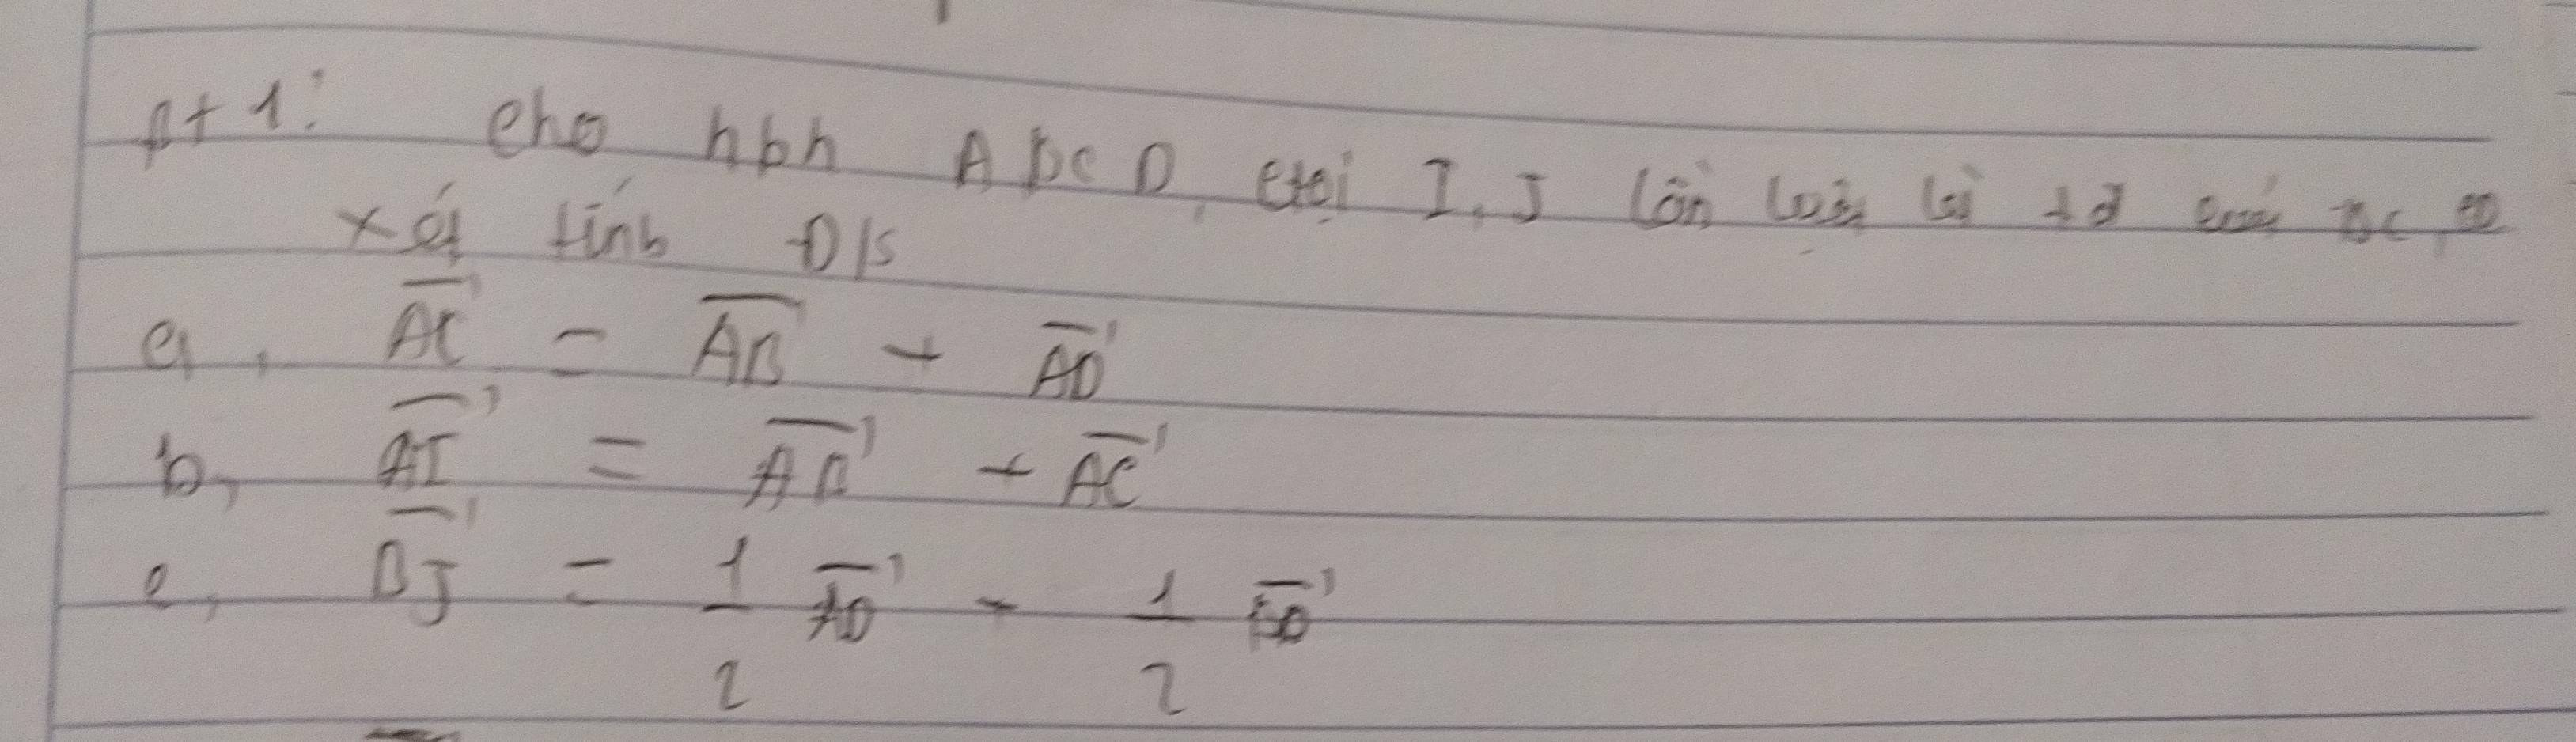 Bt 1: Cho hbh ABCD, Gọi I, J lần lượt là tđ của BC, CD
Xét tính Đ/S
a, AC = AB + AD
b, AI = AB + AC
c, BJ = 1/2 AD - 1/2